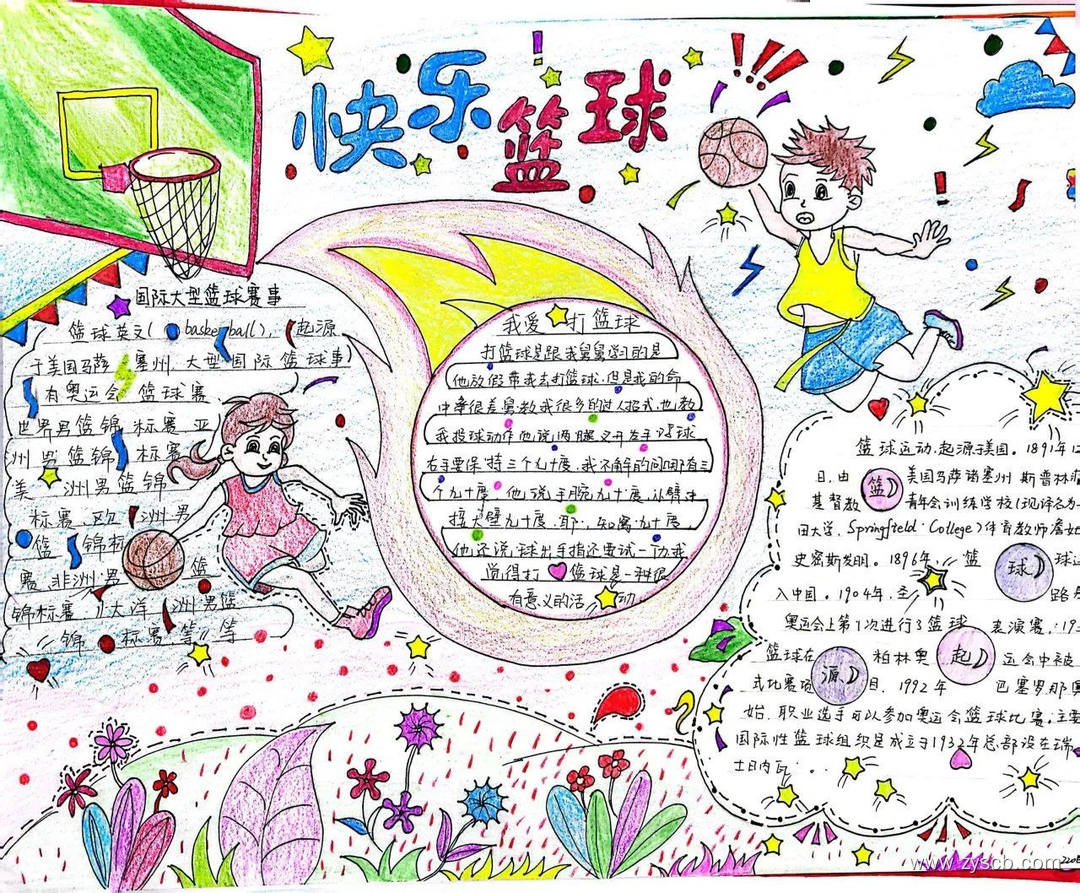 快乐篮球
国际大型篮球赛事
篮球英文(basketball),起源
于美国马萨 塞州 大型国际篮球事
有奥运会 篮球赛
世界男篮锦标赛 亚
洲男篮锦标赛
美洲男篮锦
标赛 欧洲男
篮锦标
赛 非洲男篮
锦标赛 大洋洲男篮
锦标赛 等等
我爱打篮球
打篮球是跟我舅舅学习的是
他放假带我去打篮球.但是我的命
中率很差舅教我很多的过人招式.也教
我投球动作他说两腿叉开发手
右手要保持三个九十度.我不解的问哪有三
个九十度.他说手腕九十度.小臂
大臂九十度
他还说.球出手指还要
觉得打篮球是一种很
有意义的活动
篮球运动,起源于美国。1891年12
日.由美国马萨诸塞州 斯普林
基督教青年会训练学校(现译名为
田大学.Springfield College)体育教师
史密斯发明。1896年.篮球
入中国。1904年.
奥运会上第1次进行3篮球表演赛.
篮球在柏林奥运会中被
式比赛项目.1992年巴塞罗那
始.职业选手可以参加奥运会篮球比赛.主要
国际性篮球组织是成立于1932年总部设在瑞
士日内瓦...
篮球起源
www.zyscb.com